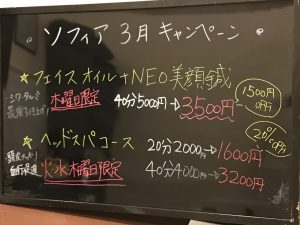 ソフィア 3月 キャンペーン
☆フェイスオイル+NEO美顔鍼
シワ・タルミ
最強引き上げ!
木曜日限定
40分5000円→3500円
1500円
OFF
☆ヘッドスパコース
20分2000円→1600円
20%
OFF
頭皮スッキリ
血行促進
火水木曜日限定
40分4000円→3200円